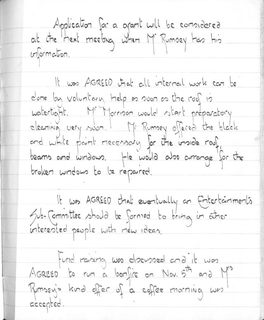 Application for a grant will be considered
at the next meeting when Mr Rumsey has his
information.
It was AGREED that all internal work can be
done by voluntary help as soon as the roof is
watertight. Mr Morrison would start preparatory
cleaning very soon. Mr Rumsey offered the black
and white paint necessary for the inside roof
beams and windows. He would also arrange for the
broken windows to be repaired.
It was AGREED that eventually an Entertainments
Sub-Committee should be formed to bring in other
interested people with new ideas.
Fund raising was discussed and it was
AGREED to run a bonfire on Nov. 5th and Mrs
Rumsey's kind offer of a coffee morning was
accepted.